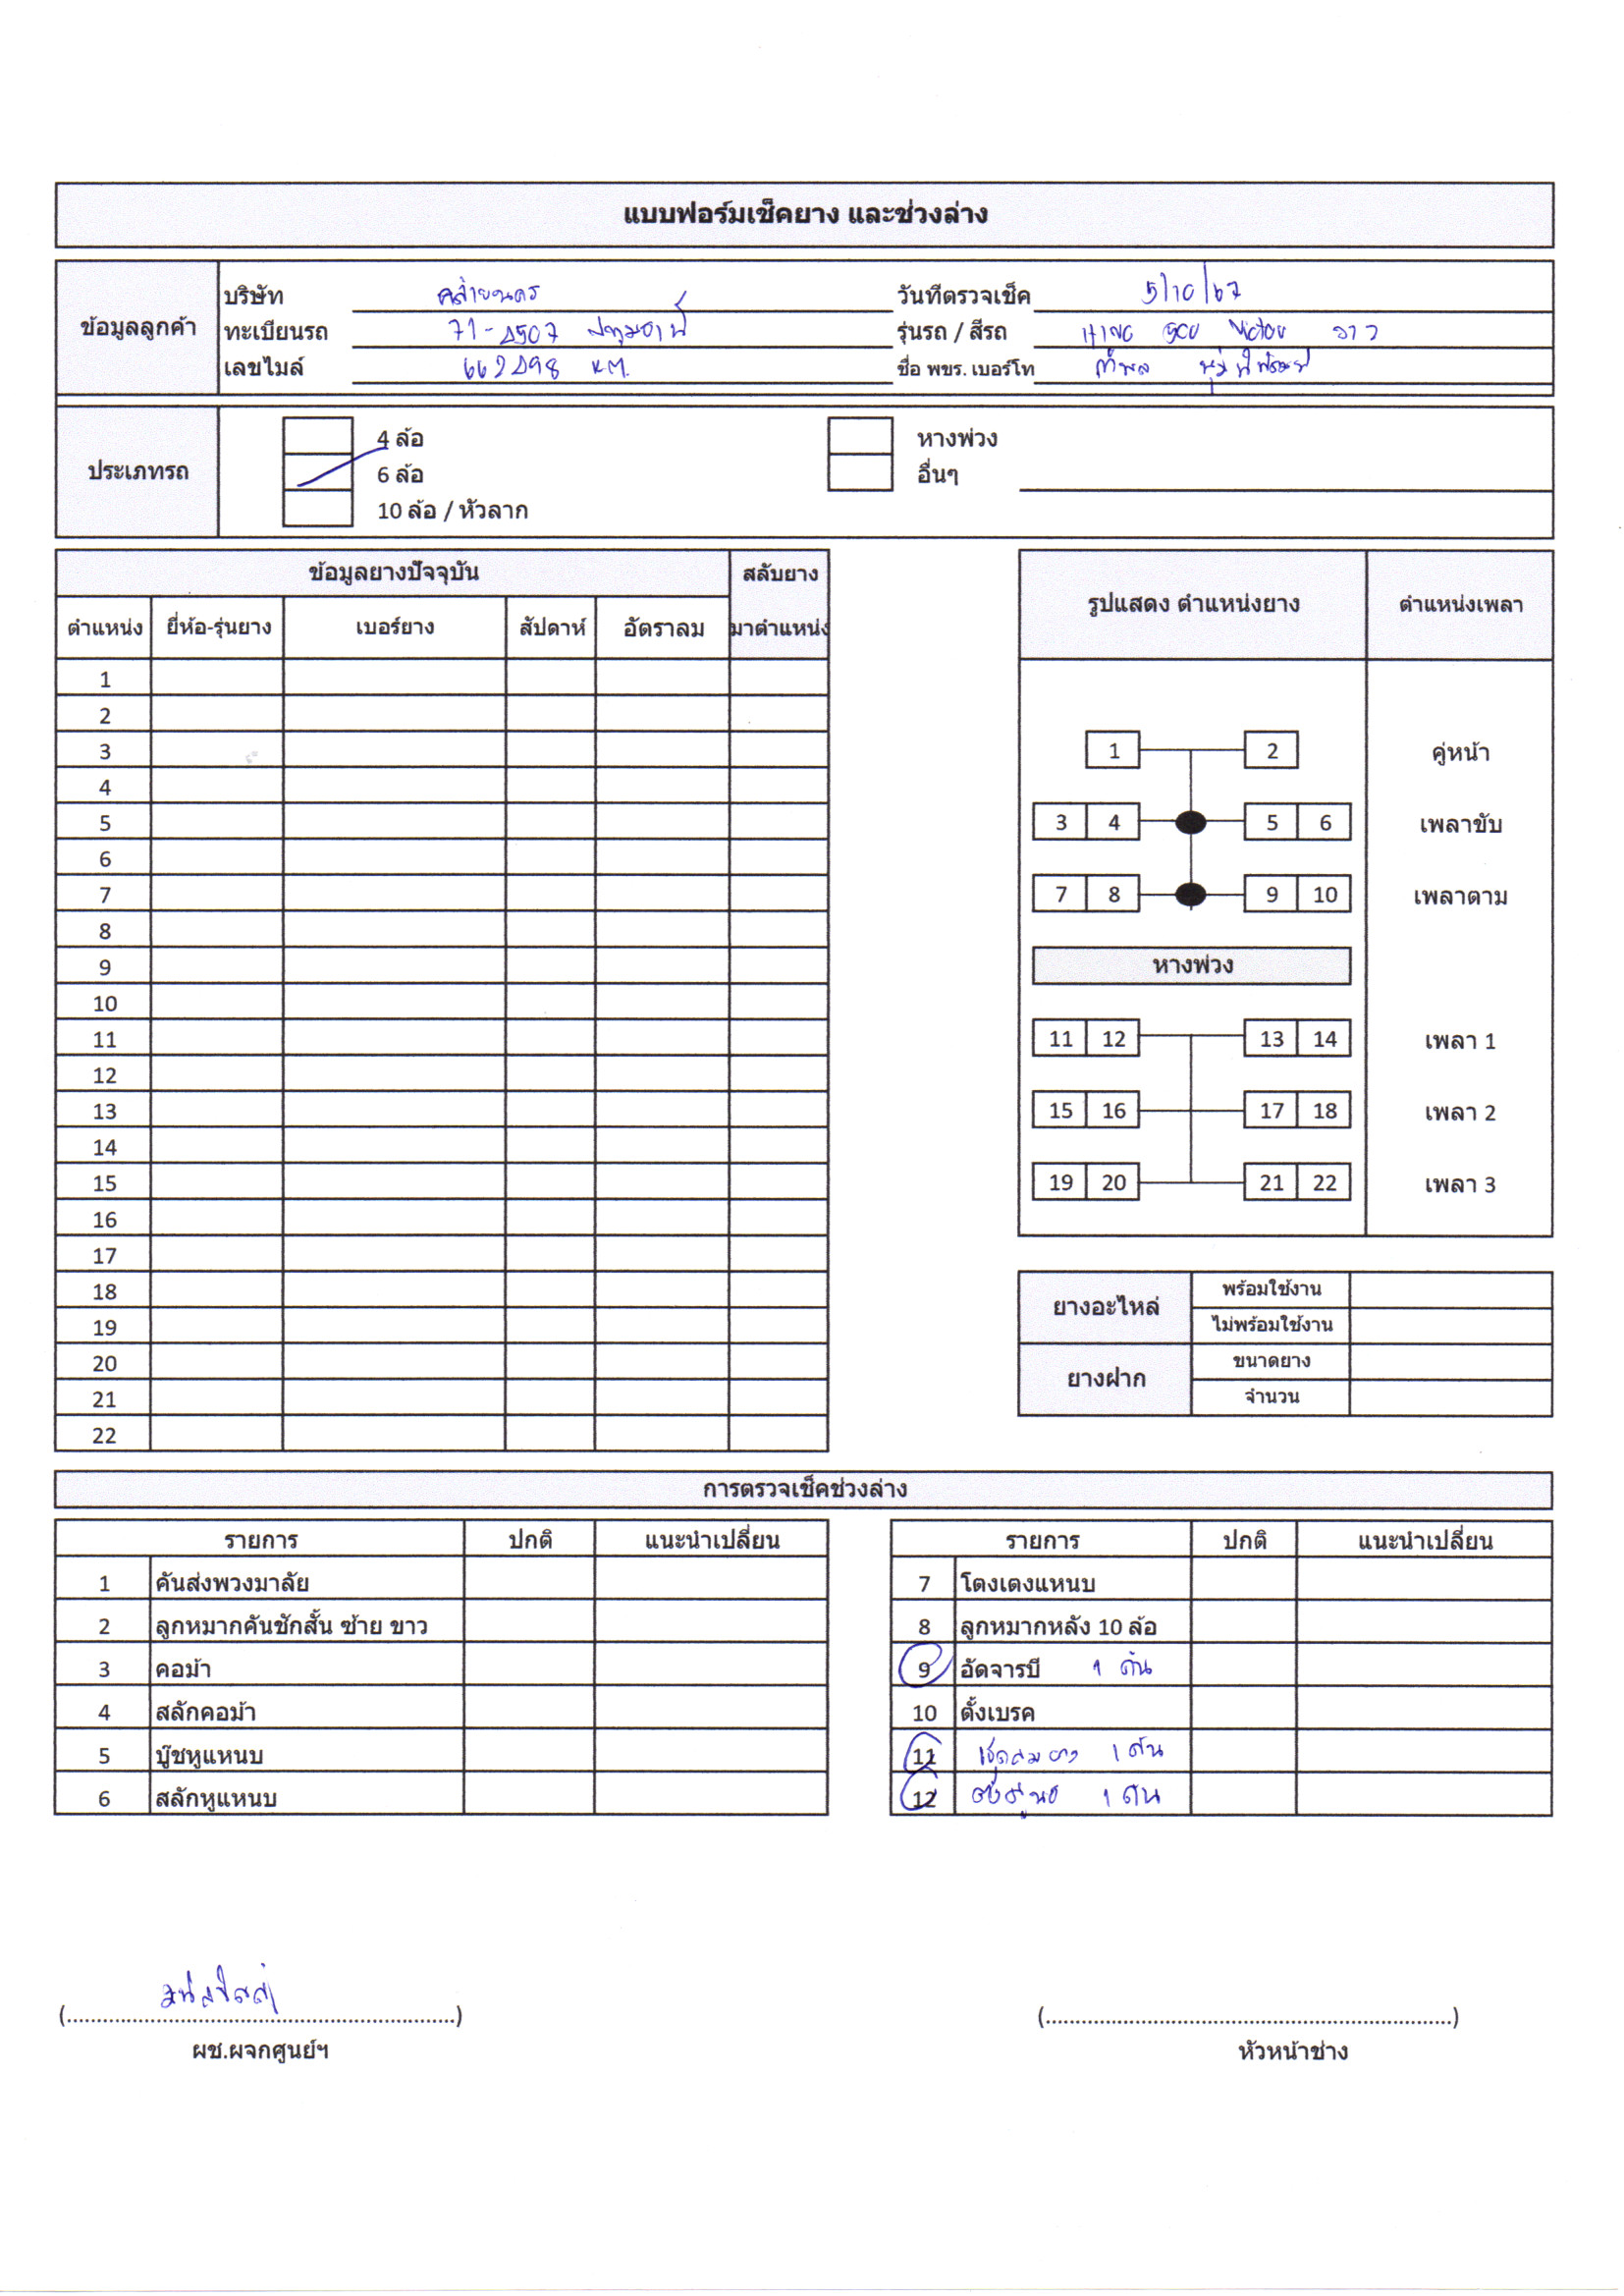 แบบฟอร์มเช็คยาง และช่วงล่าง
ข้อมูลลูกค้า
บริษัท คล้ายนคร วันที่ตรวจเช็ค 5/10/67
ทะเบียนรถ 71-4507 ปทุมธานี รุ่นรถ / สีรถ HINO Victor ขาว
เลขไมล์ 662498 KM. ชื่อ พขร. เบอร์โท
ประเภทรถ
4 ล้อ หางพ่วง
6 ล้อ อื่นๆ
10 ล้อ / หัวลาก
ข้อมูลยางปัจจุบัน สลับยาง
ตำแหน่ง ยี่ห้อ-รุ่นยาง เบอร์ยาง สัปดาห์ อัตราลม มาตำแหน่ง
1
2
3
4
5
6
7
8
9
10
11
12
13
14
15
16
17
18
19
20
21
22
รูปแสดง ตำแหน่งยาง ตำแหน่งเพลา
1 2 คู่หน้า
3 4 5 6 เพลาขับ
7 8 9 10 เพลาตาม
หางพ่วง
11 12 13 14 เพลา 1
15 16 17 18 เพลา 2
19 20 21 22 เพลา 3
ยางอะไหล่ พร้อมใช้งาน
ไม่พร้อมใช้งาน
ยางฝาก ขนาดยาง
จำนวน
การตรวจเช็คช่วงล่าง
รายการ ปกติ แนะนำเปลี่ยน
1 คันส่งพวงมาลัย
2 ลูกหมากคันชักสั้น ซ้าย ขาว
3 คอม้า
4 สลักคอม้า
5 บู๊ชหูแหนบ
6 สลักหูแหนบ
รายการ ปกติ แนะนำเปลี่ยน
7 โตงเตงแหนบ
8 ลูกหมากหลัง 10 ล้อ
9 อัดจารบี 1 คัน
10 ตั้งเบรค
11 เช็คลมยาง 1 คัน
12 ตั้งศูนย์ 1 คัน
(....................................................................)
ผช.ผจกศูนย์ฯ
(....................................................................)
หัวหน้าช่าง